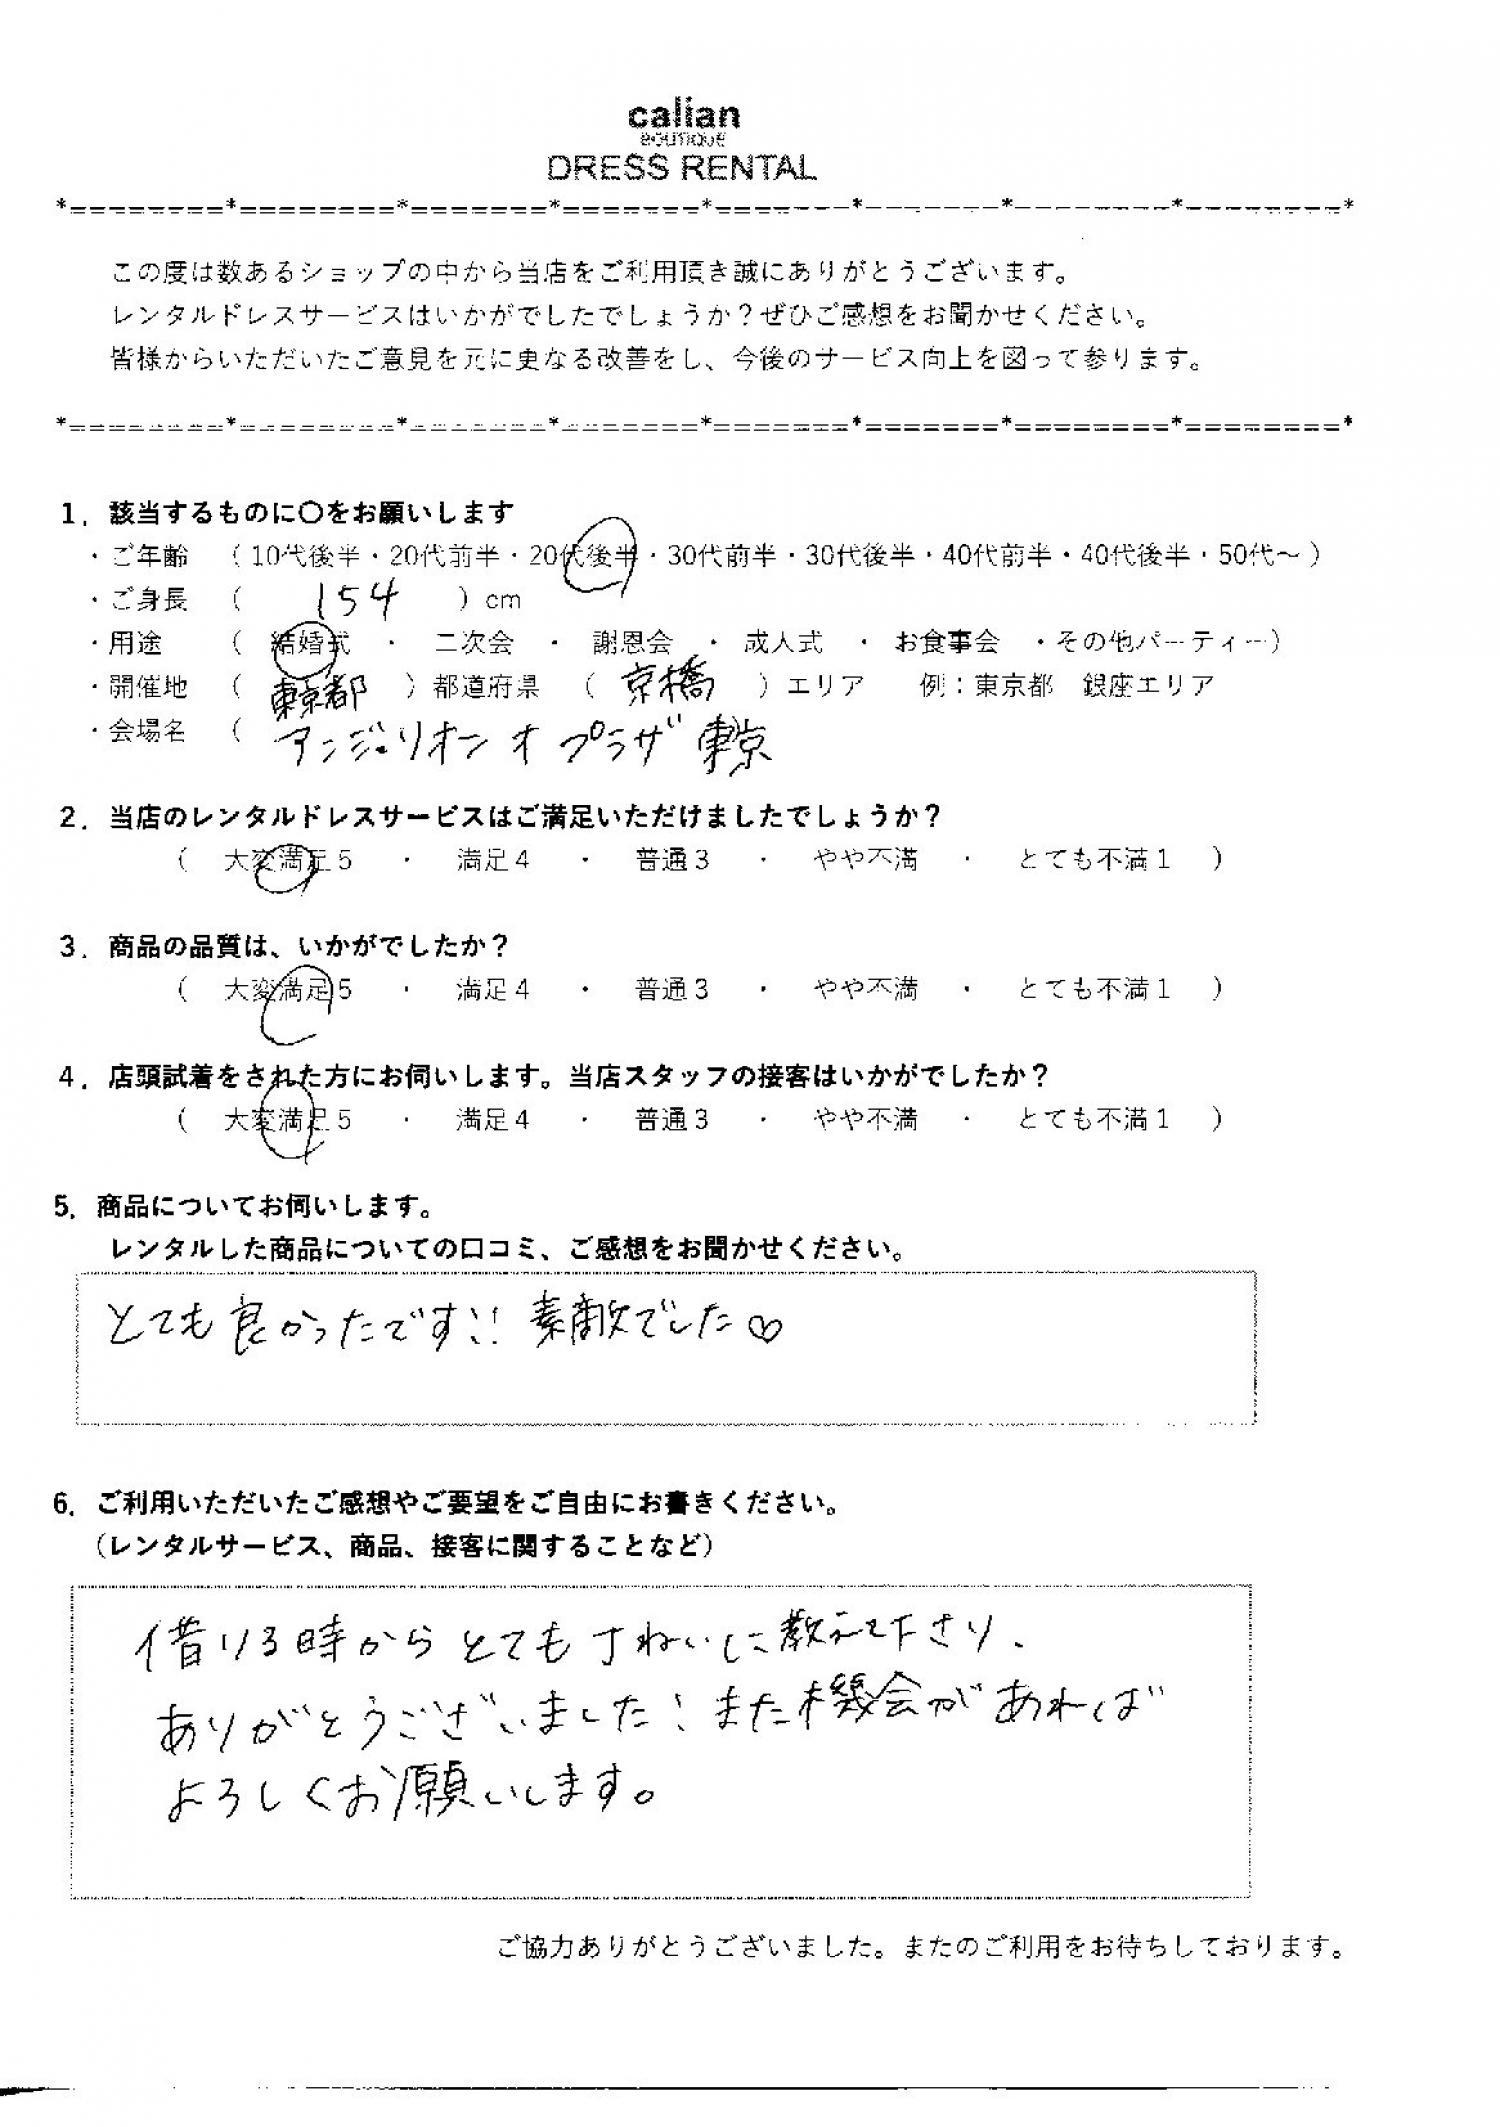 calian
BOUTIQUE
DRESS RENTAL
*========*========*=======*=======*=======*=======*========*========*
この度は数あるショップの中から当店をご利用頂き誠にありがとうございます。
レンタルドレスサービスはいかがでしたでしょうか？ぜひご感想をお聞かせください。
皆様からいただいたご意見を元に更なる改善をし、今後のサービス向上を図って参ります。
*========*========*=======*=======*=======*=======*========*========*
1．該当するものに〇をお願いします
・ご年齢 （10代後半・20代前半・20代後半・30代前半・30代後半・40代前半・40代後半・50代～）
・ご身長 （ 154 ）cm
・用途 （ 結婚式 ・ 二次会 ・ 謝恩会 ・ 成人式 ・ お食事会 ・その他パーティー）
・開催地 （ 東京都 ）都道府県 （ 京橋 ）エリア 例：東京都 銀座エリア
・会場名 （ アンジェリオン オ プラザ 東京
2．当店のレンタルドレスサービスはご満足いただけましたでしょうか？
（ 大変満足5 ・ 満足4 ・ 普通3 ・ やや不満 ・ とても不満1 ）
3．商品の品質は、いかがでしたか？
（ 大変満足5 ・ 満足4 ・ 普通3 ・ やや不満 ・ とても不満1 ）
4．店頭試着をされた方にお伺いします。当店スタッフの接客はいかがでしたか？
（ 大変満足5 ・ 満足4 ・ 普通3 ・ やや不満 ・ とても不満1 ）
5．商品についてお伺いします。
レンタルした商品についての口コミ、ご感想をお聞かせください。
とても良かったです!! 素敵でした♡
6．ご利用いただいたご感想やご要望をご自由にお書きください。
（レンタルサービス、商品、接客に関することなど）
借りる時からとても丁ねいに教えて下さり、
ありがとうございました！また機会があれば
よろしくお願いします。
ご協力ありがとうございました。またのご利用をお待ちしております。